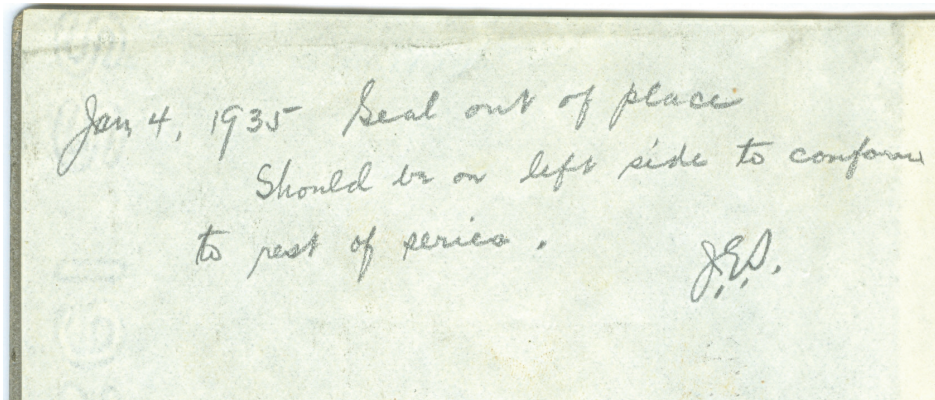 Jan 4, 1935 Seal out of place
Should be on left side to conform
to rest of series.
J.E.S.